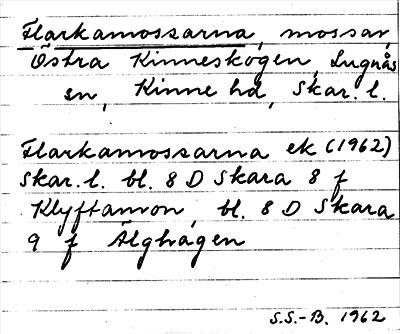 Flarkamossarna, mossar,
Östra Kinneskogen, Lugnås
sn, Kinne hd, Skar. l.
Flarkamossarna ek (1962)
Skar. l. bl. 8 D Skara 8 f
Klyftamon, bl. 8 D Skara
9 f Älghagen
S.S.-B. 1962